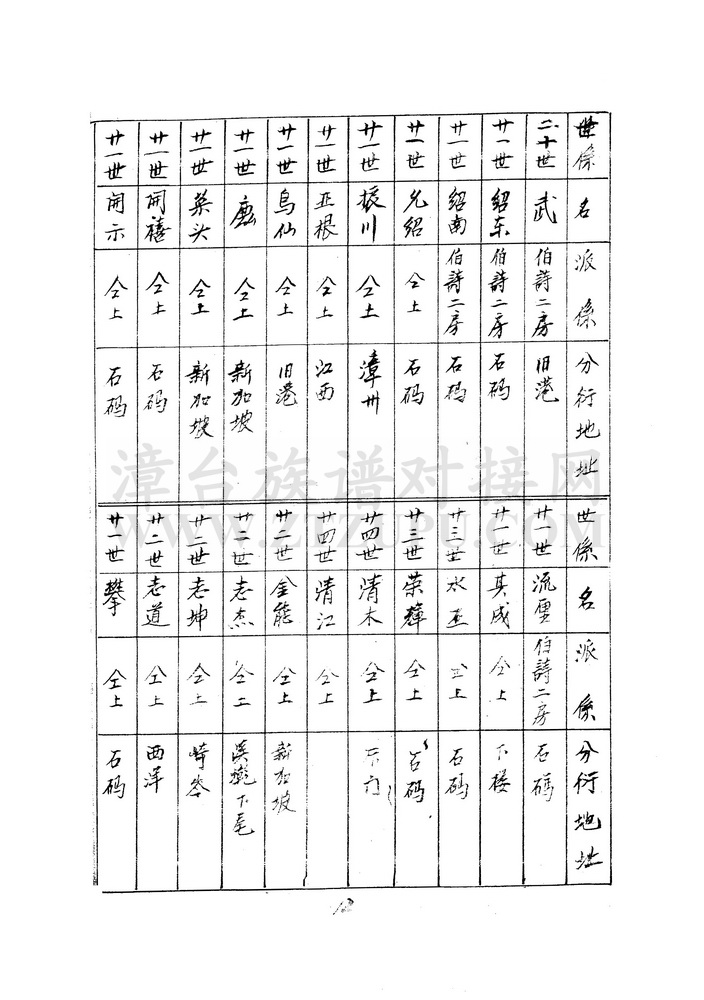 世係 名 派係 分衍地址
二十世 武 伯詩二房 旧港
廿一世 绍东 伯詩二房 石码
廿一世 绍南 伯詩二房 石码
廿一世 允绍 仝上 石码
廿一世 振川 仝上 漳州
廿一世 亚根 仝上 江西
廿一世 鸟仙 仝上 旧港
廿一世 仝上 新加坡
廿一世 菜头 仝上 新加坡
廿一世 開禧 仝上 石码
廿一世 開示 仝上 石码
世係 名 派係 分衍地址
廿一世 流 伯詩二房 石碼
廿一世 其成 仝上 下楼
廿三世 水 仝上 石码
廿三世 荣辉 仝上 石码
廿四世 清木 仝上
廿四世 清江 仝上
廿二世 金能 仝上 新加坡
廿二世 志杰 仝上 溪 下尾
廿二世 志坤 仝上 崎岑
廿二世 志道 仝上 西洋
廿一世 攀 仝上 石码
12
漳台族谱对接网
www.ZTZUPU.com